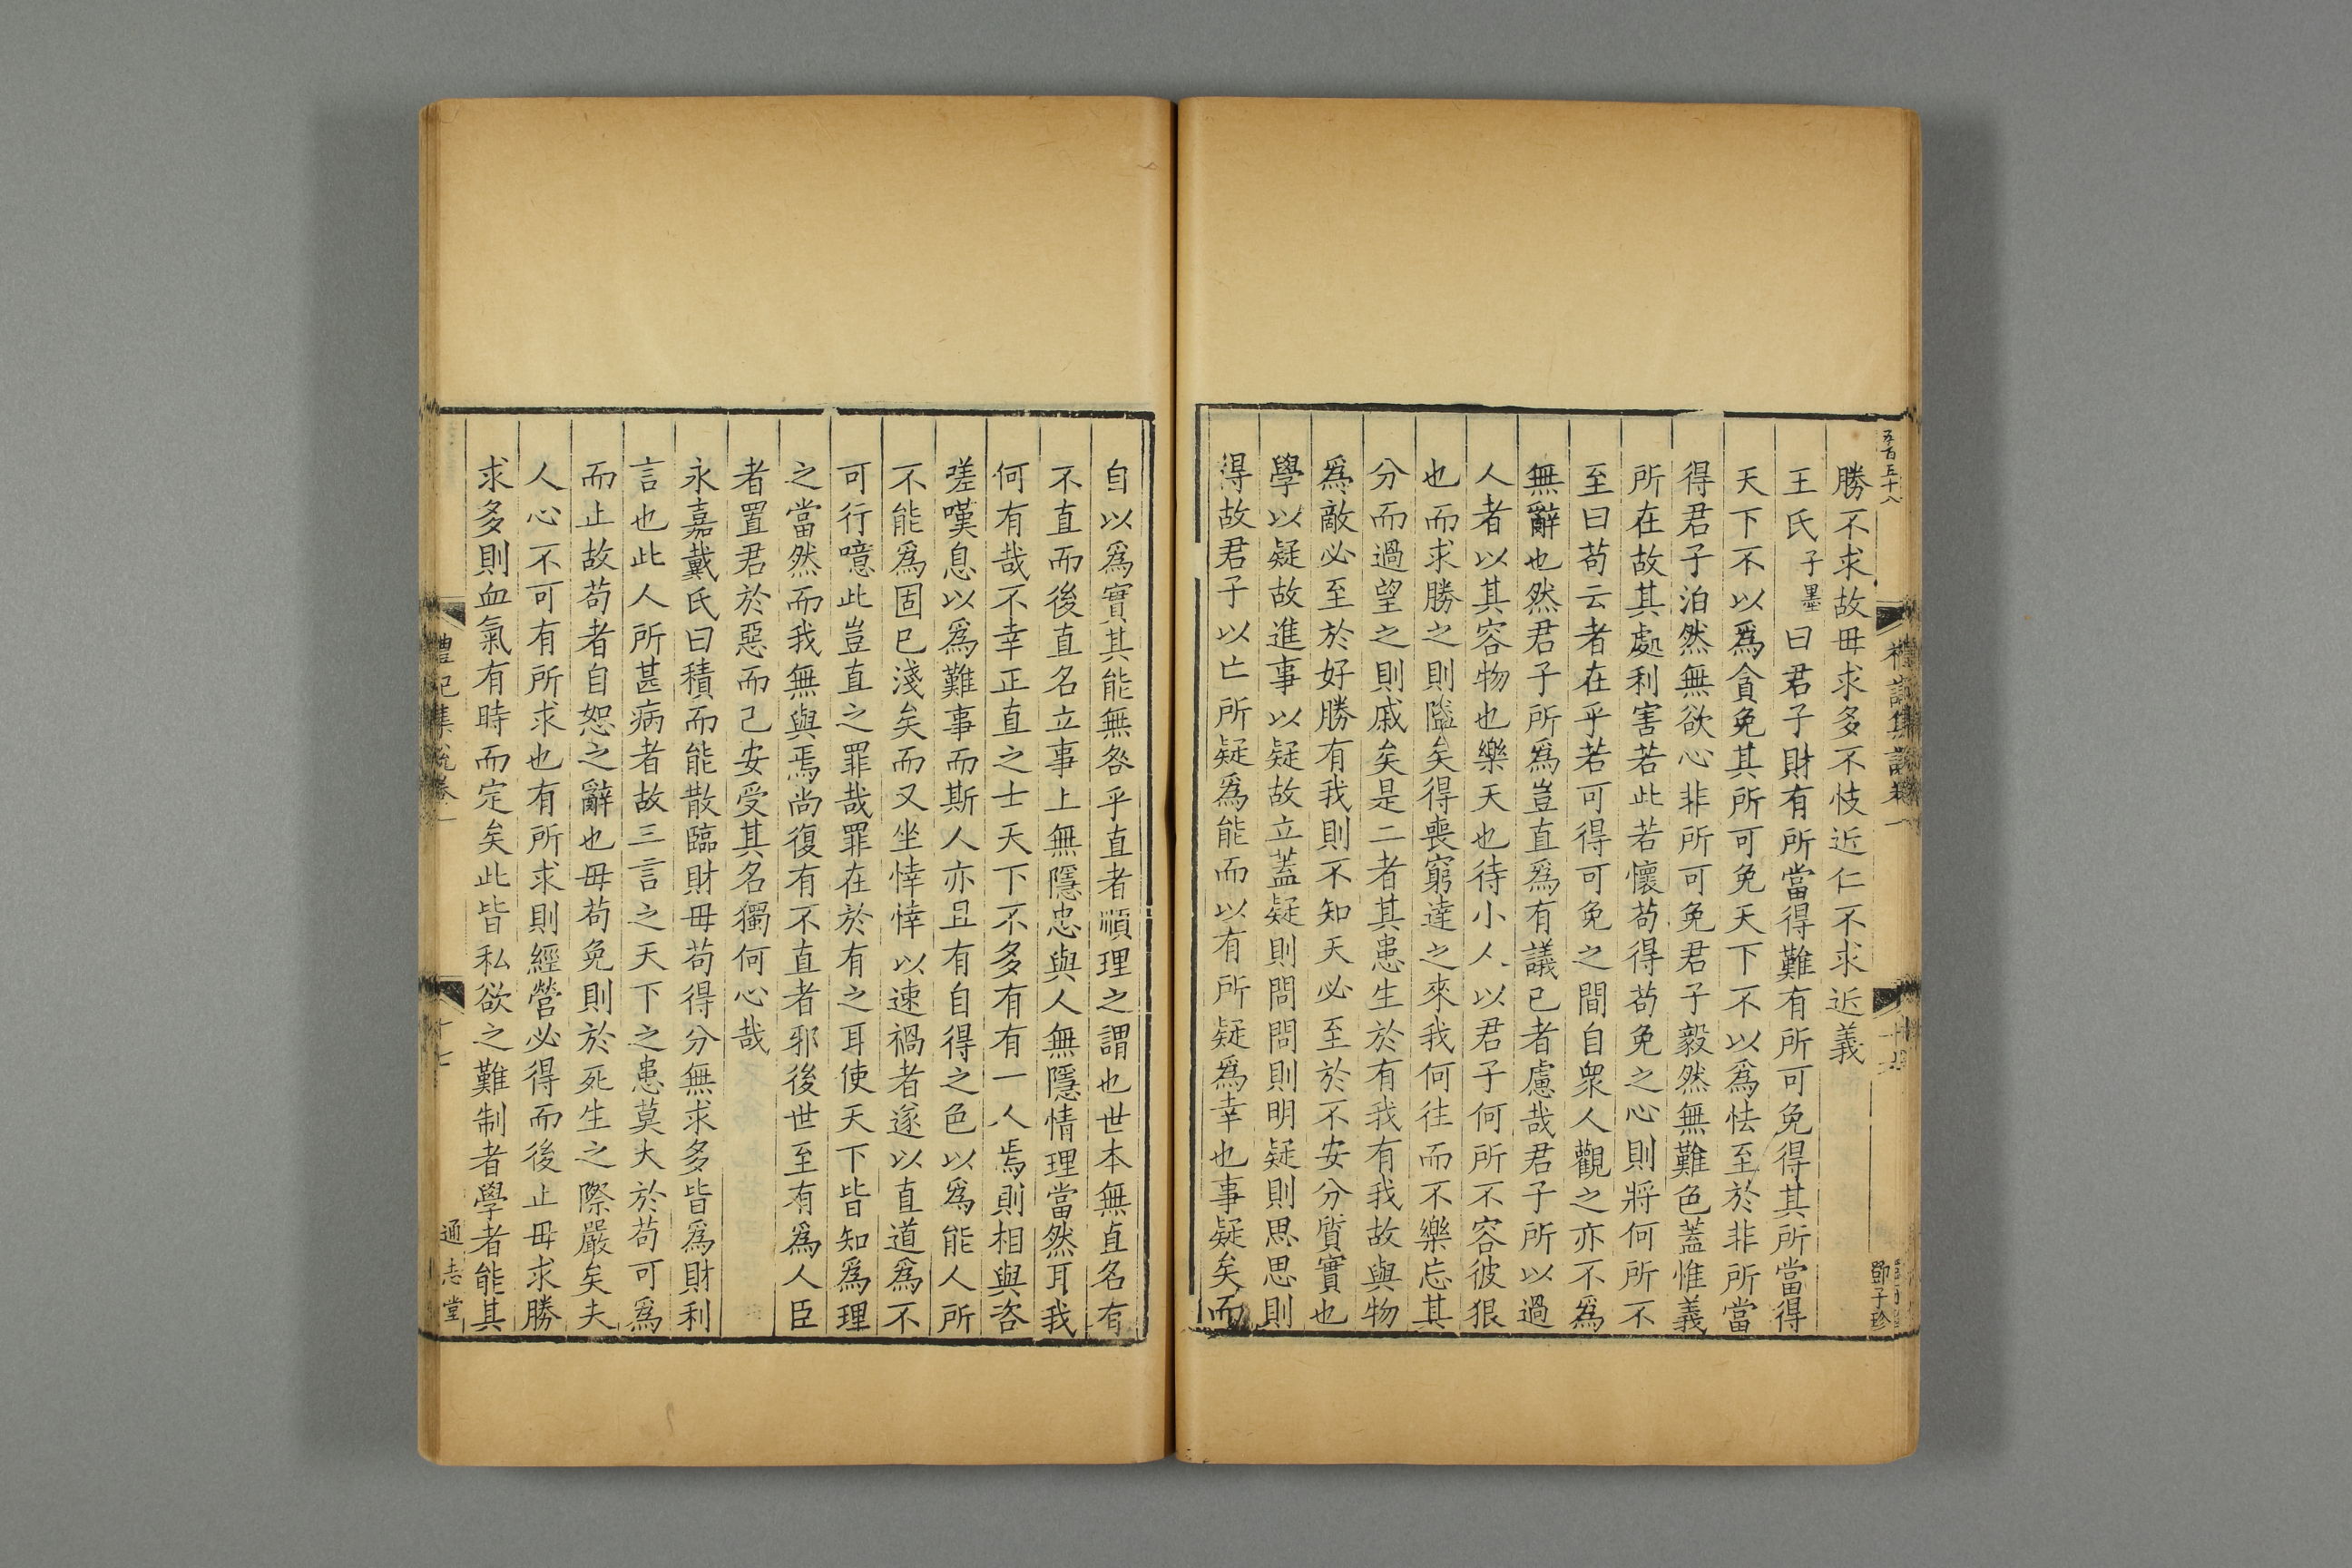 五百五十八
勝不求故毋求多不忮近仁不求近義
王氏子墨曰君子財有所當得難有所可免得其所當得
天下不以爲貪免其所可免天下不以爲怯至於非所當
得君子泊然無欲心非所可免君子毅然無難色蓋惟義
所在故其處利害若此若懷苟得苟免之心則將何所不
至曰苟云者在乎若可得可免之間自衆人觀之亦不爲
無辭也然君子所爲豈直爲有議已者慮哉君子所以過
人者以其容物也樂天也待小人以君子何所不容彼狠
也而求勝之則隘矣得喪窮達之來我何往而不樂忘其
分而過望之則戚矣是二者其患生於有我有我故與物
爲敵必至於好勝有我則不知天必至於不安分質實也
學以疑故進事以疑故立蓋疑則問問則明疑則思思則
得故君子以亡所疑爲能而以有所疑爲幸也事疑矣而
禮記集說卷一
鄧子珍
自以爲實其能無咎乎直者順理之謂也世本無直名有
不直而後直名立事上無隱忠與人無隱情理當然耳我
何有哉不幸正直之士天下不多有有一人焉則相與咨
嗟嘆息以爲難事而斯人亦且有自得之色以爲能人所
不能爲固已淺矣而又坐悻悻以速禍者遂以直道爲不
可行噫此豈直之罪哉罪在於有之耳使天下皆知爲理
之當然而我無與焉尚復有不直者邪後世至有爲人臣
者置君於惡而己安受其名獨何心哉
永嘉戴氏曰積而能散臨財毋苟得分無求多皆爲財利
言也此人所甚病者故三言之天下之患莫大於苟可爲
而止故苟者自恕之辭也毋苟免則於死生之際嚴矣夫
人心不可有所求也有所求則經營必得而後止毋求勝
求多則血氣有時而定矣此皆私欲之難制者學者能其
禮記集說卷一
十七
通志堂